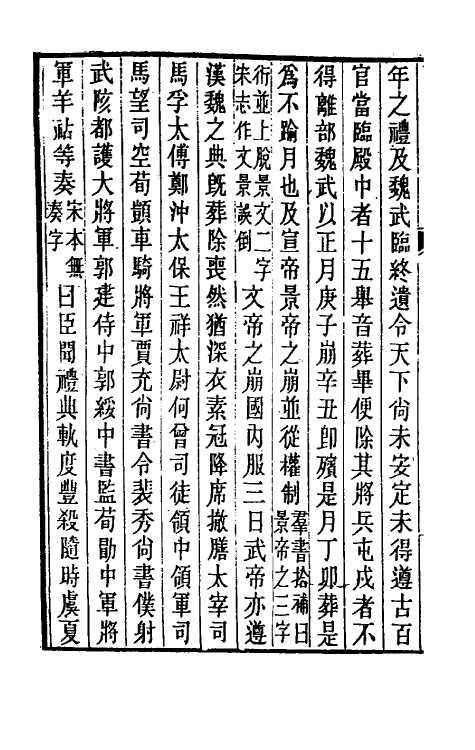 年之禮及魏武臨終遺令天下尚未安定未得遵古百
官當臨殿中者十五舉音葬畢便除其將兵屯戍者不
得離部魏武以正月庚子崩辛丑卽殯是月丁卯葬是
爲不踰月也及宣帝景帝之崩並從權制羣書拾補曰景帝之三字
衍並上脫景文二字宋志作文景誤倒文帝之崩國內服三日武帝亦遵
漢魏之典旣葬除喪然猶深衣素冠降席撤膳太宰司
馬孚太傅鄭沖太保王祥太尉何曾司徒領中領軍司
馬望司空荀顗車騎將軍賈充尚書令裴秀尚書僕射
武陔都護大將軍郭建侍中郭綏中書監荀勖中軍將
軍羊祜等奏宋本無奏字曰臣聞禮典軌度豐殺隨時虞夏